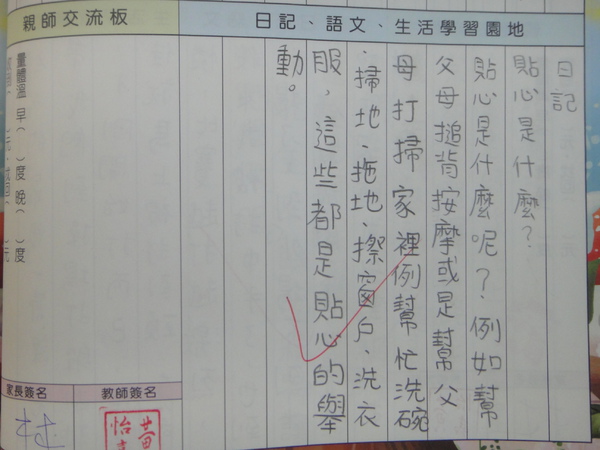 親師交流板
日記、語文、生活學習園地
日記
貼心是什麼?
貼心是什麼呢?例如幫
父母搥背按摩或是幫父
母打掃家裡例幫忙洗碗
、掃地、拖地、擦窗戶、洗衣
服,這些都是貼心的舉
動。
量體溫 早( )度 晚( )度
家長簽名
教師簽名